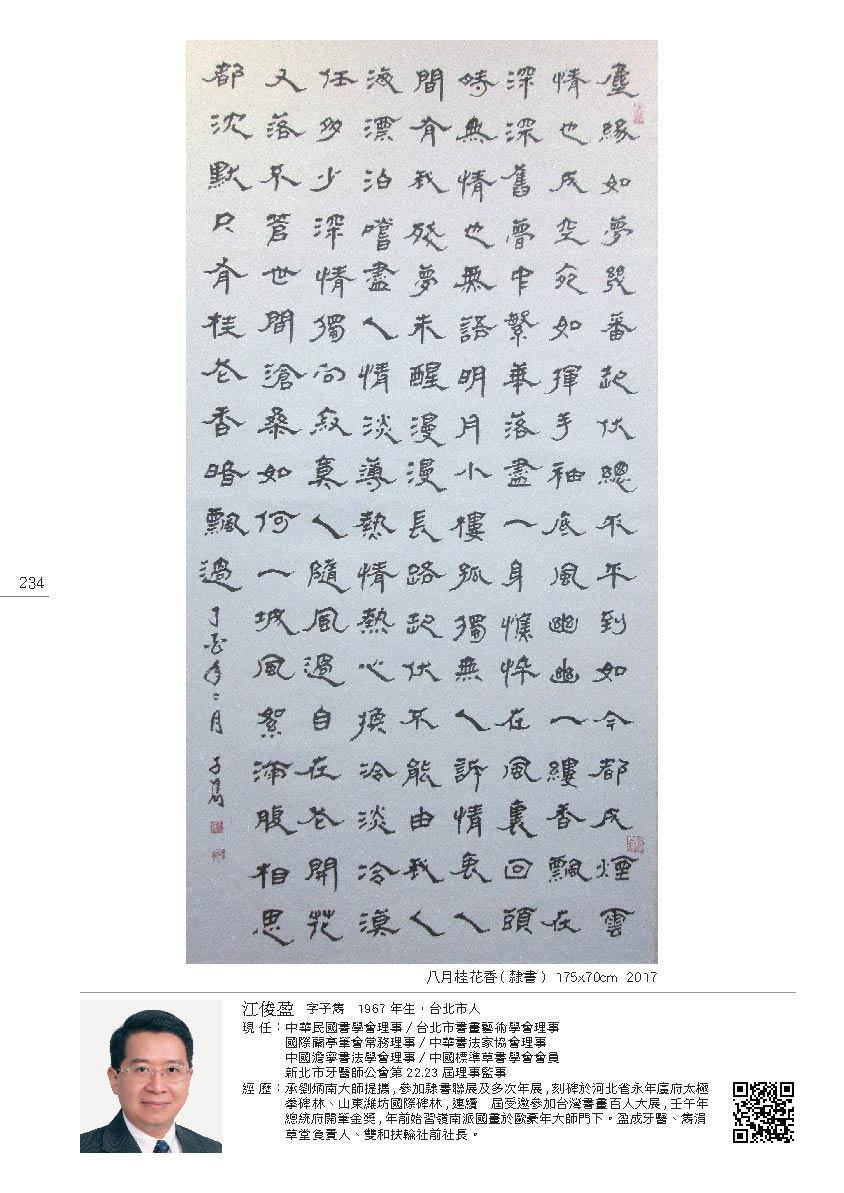 塵緣如夢幾番起伏總不平到如今都成煙雲
情也成空宛如揮手袖底風幽幽一縷香飄在
深深舊夢中繁華落盡一身憔悴在風裏回頭
時無情也無語明月小樓孤獨無人訴情衷人
間有我殘夢未醒漫漫長路起伏不能由我人
海漂泊嚐盡人情淡薄熱情熱心換冷淡冷漠
任多少深情獨向寂寞人隨風過自在花開花
又落不管世間滄桑如何一城風絮滿腹相思
都沈默只有桂花香暗飄過 丁酉年二月 子雋
234
八月桂花香 ( 隸書 ) 175x70cm 2017
江俊盈 字子雋 1967 年生，台北市人
現 任：中華民國書學會理事 / 台北市書畫藝術學會理事
國際蘭亭筆會常務理事 / 中華書法家協會理事
中國澹寧書法學會理事 / 中國標準草書學會會員
新北市牙醫師公會第 22.23 屆理事監事
經 歷：承劉炳南大師提攜 , 參加隸書聯展及多次年展 , 刻碑於河北省永年廣府太極
拳碑林、山東濰坊國際碑林 , 連續 屆受邀參加台灣書畫百人大展 , 壬午年
總統府開筆金獎 , 年前始習嶺南派國畫於歐豪年大師門下。盈成牙醫、雋涓
草堂負責人、雙和扶輪社前社長。